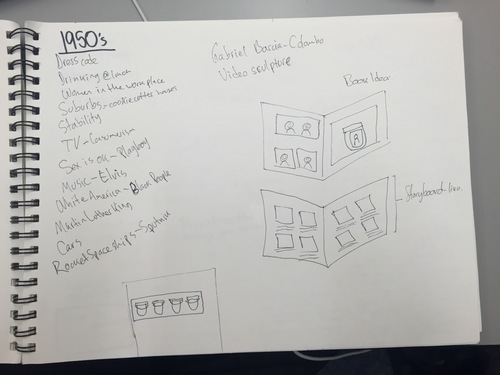 1950's
Dresscode
Drinking @ lunch
Women in the workplace
Suburbs - cookie cutter houses
Stability
TV - Consumerism
Sex is ou - Playboy
Music - Elvis
White America - Black People
Martin Luther King
Cars
Rocket Spaceships - Sputnik
Gabriel Barcia-Colombo
Video sculpture
Book Idea
Storyboard-